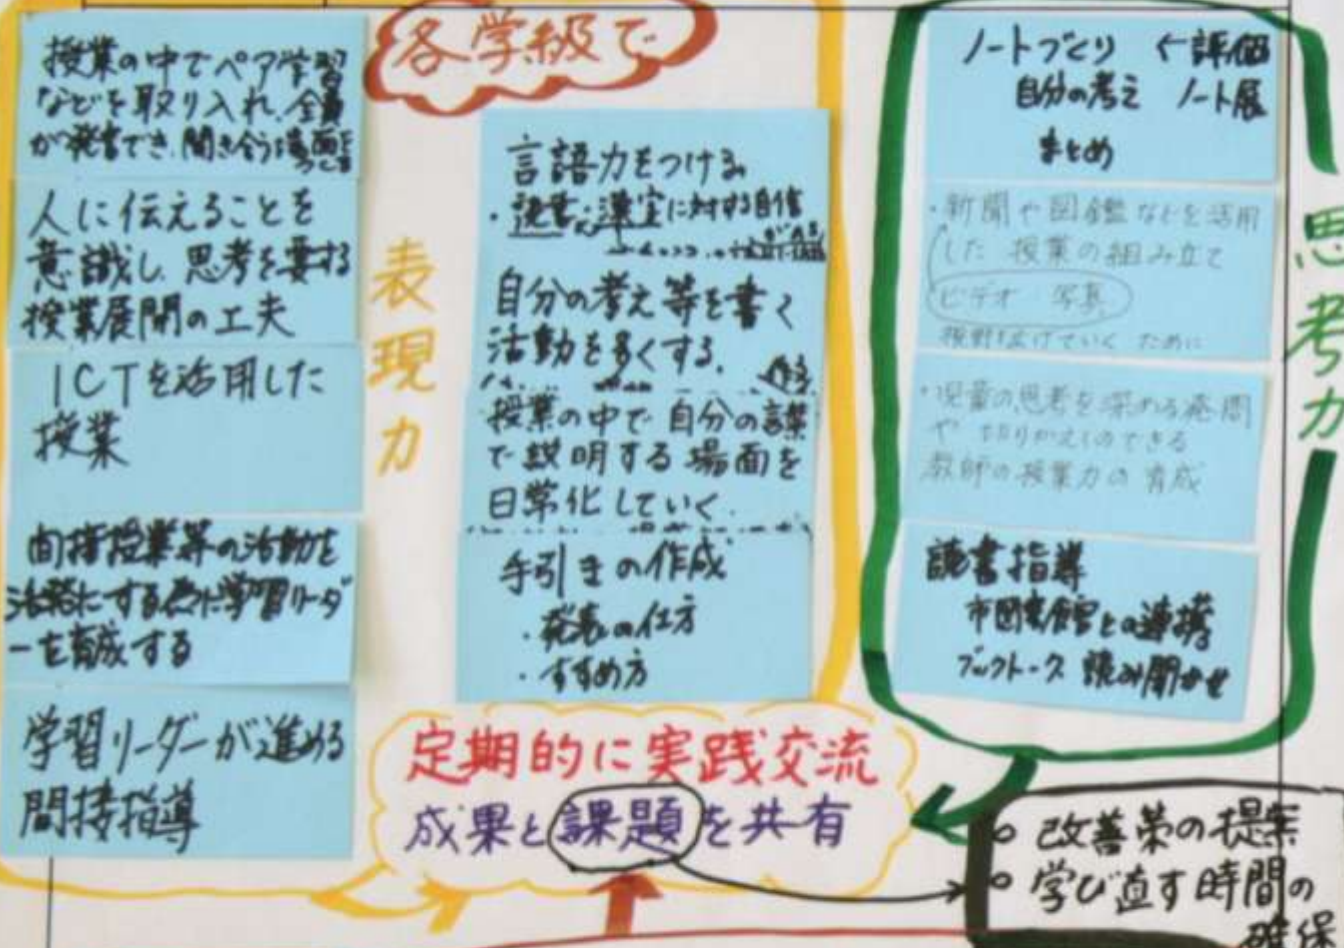 各学級で
授業の中でペア学習
などを取り入れ、全員
が発言でき、聞き合う場面を
人に伝えることを
意識し、思考を要する
授業展開の工夫
ICTを活用した
授業
間接授業等の活動を
活発にする為に学習リーダ
ーを育成する
学習リーダーが進める
間接指導
表現力
言語力をつける
・読書 選定に対する自信
自分の考え等を書く
活動を多くする。
授業の中で自分の言葉
で説明する場面を
日常化していく
手引きの作成
・発表の仕方
・すすめ方
ノートづくり ←評価
自分の考え ノート展
まとめ
・新聞や図鑑などを活用
した 授業の組み立て
ビデオ 写真
視野を広げていく ために
・児童の思考を深める発問
や 切りかえしのできる
教師の授業力の育成
読書指導
市図書館との連携
ブックトーク 読み聞かせ
思考力
定期的に実践交流
成果と課題を共有
○改善策の提案
○学び直す時間の
確保